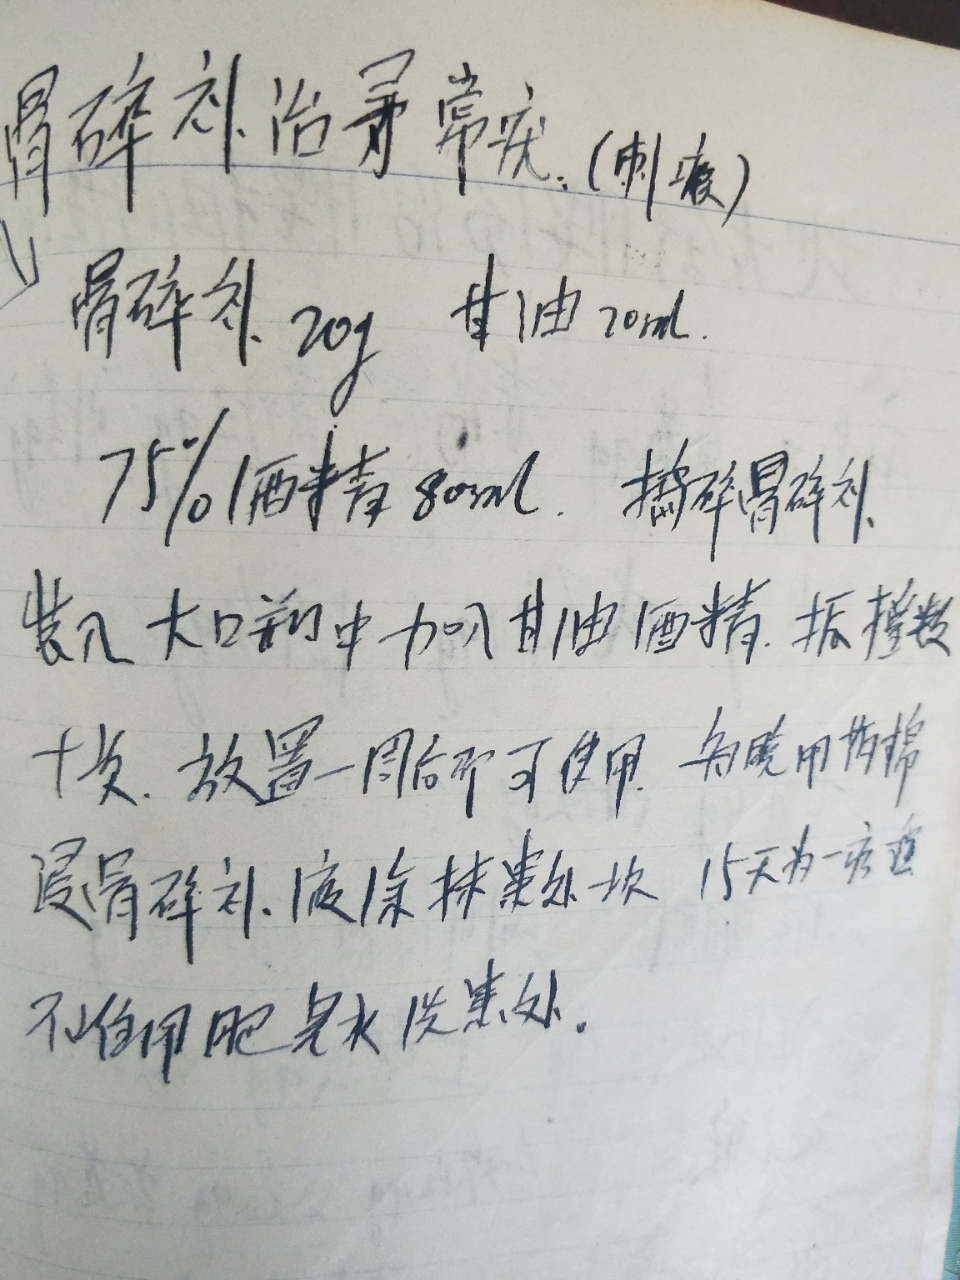 骨碎补治寻常疣.(刺瘊)
骨碎补 20g 甘油 20ml.
75%酒精 80ml. 捣碎骨碎补
装入大口瓶中加入甘油酒精. 振摇数
十次. 放置一周后即可使用. 每晚用药棉
浸骨碎补液涂抹患处一次 15天为一疗程
不住用肥皂水洗患处.